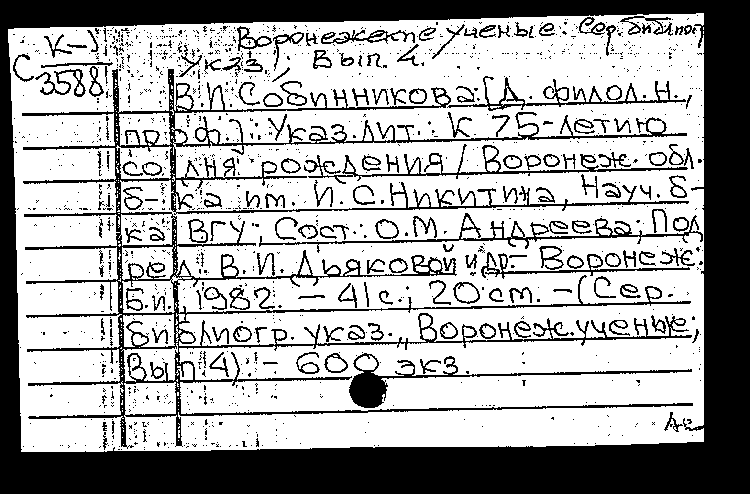 Воронежские ученые: Сер. библиогр
К-)
С 3588
Указ.); Вып. 4.
В.И. Собинникова: [Д. филол. н.,
проф.]: Указ. лит.: К 75-летию
со дня рождения / Воронеж. обл.
б-ка им. И.С. Никитина, Науч. б-
ка ВГУ; Сост.: О.М. Андреева; Под
ред. В.И. Дьяковой и др.- Воронеж:
Б.и., 1982. - 41 с.; 20 см. - (Сер.
библиогр. указ. „Воронеж. ученые;
Вып. 4). - 600 экз.